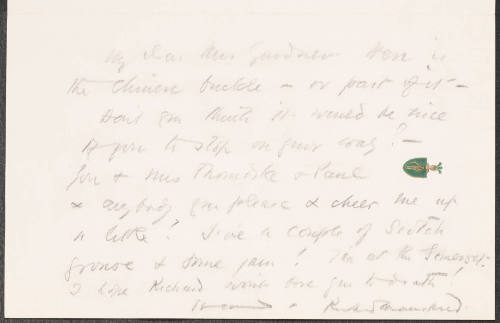 My dear Mrs Gardner Here is
the Chinese buckle – or part of it –
Dont you think it would be nice
if you to stop on your way? –
You & Mrs Thorndike & Paul
& anybody you please & cheer me up
a little! I've a couple of Scotch
grouse & some jam! I'm at the Somerset.
I hope Richard won't bore you to death!